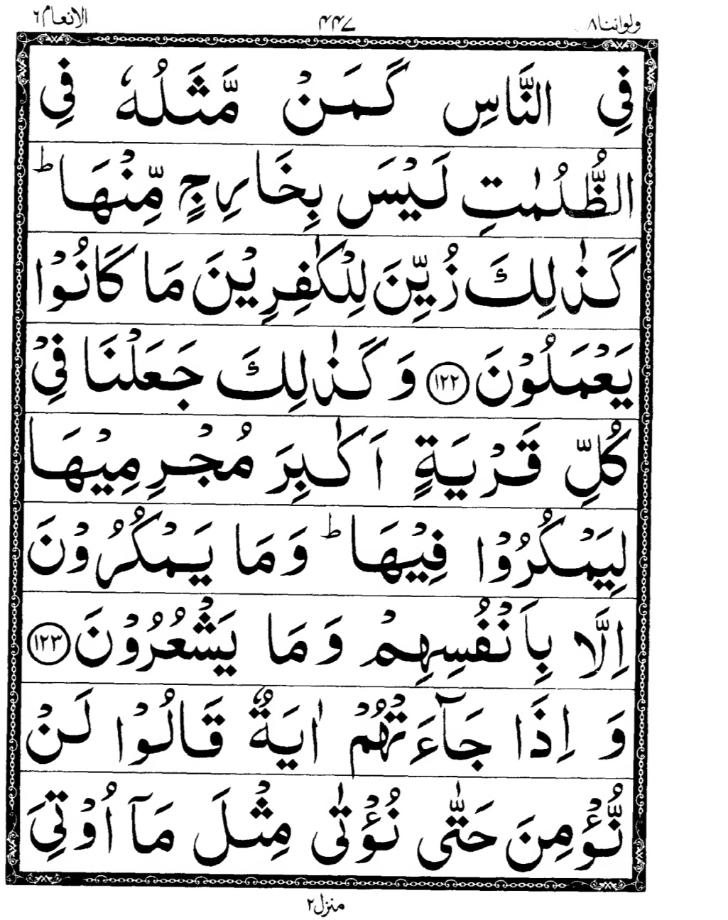 ولواننا٨ ٤٤٧ الانعام٦
فِى النَّاسِ كَمَنْ مَّثَلُهٗ فِى
الظُّلُمٰتِ لَيْسَ بِخَارِجٍ مِّنْهَا ؕ
كَذٰلِكَ زُيِّنَ لِلْكٰفِرِيْنَ مَا كَانُوْا
يَعْمَلُوْنَ ﴿١٢٢﴾ وَ كَذٰلِكَ جَعَلْنَا فِىْ
كُلِّ قَرْيَةٍ اَكٰبِرَ مُجْرِمِيْهَا
لِيَمْكُرُوْا فِيْهَا ؕ وَ مَا يَمْكُرُوْنَ
اِلَّا بِاَنْفُسِهِمْ وَ مَا يَشْعُرُوْنَ ﴿١٢٣﴾
وَ اِذَا جَآءَتْهُمْ اٰيَةٌ قَالُوْا لَنْ
نُّؤْمِنَ حَتّٰى نُؤْتٰى مِثْلَ مَاۤ اُوْتِىَ
منزل٢